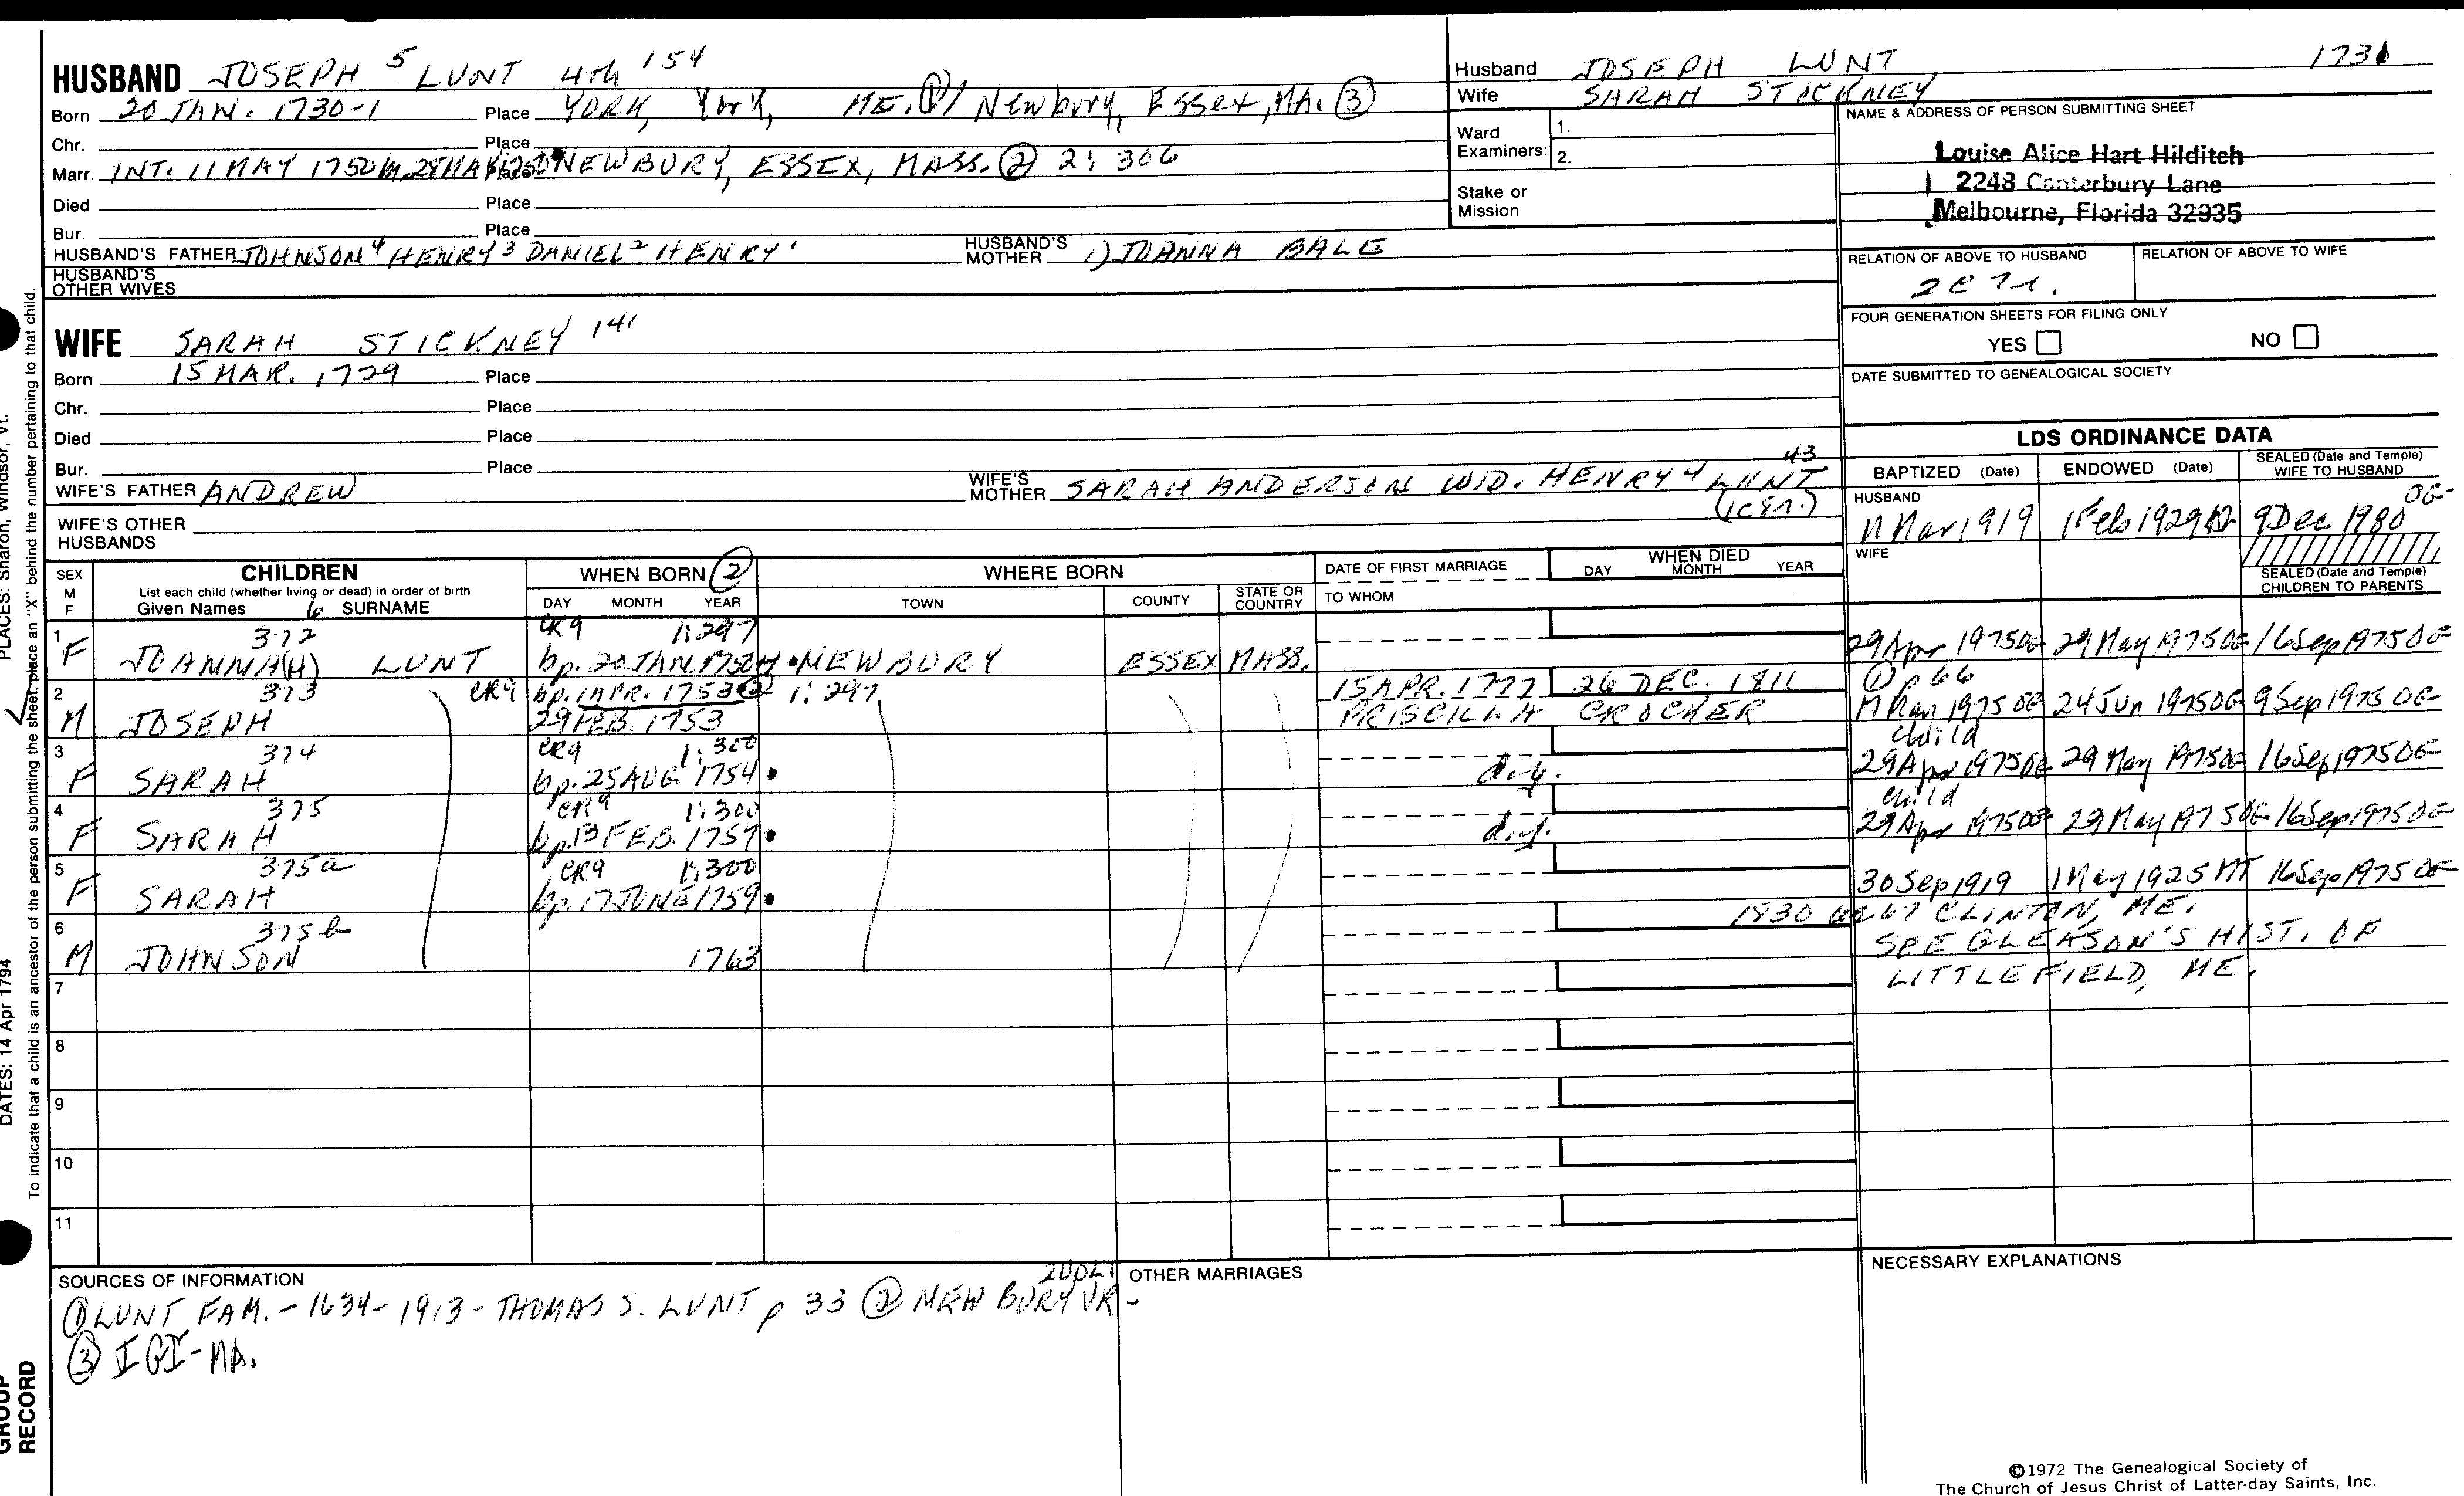 HUSBAND JOSEPH 5 LUNT 4th 154
Born 20 JAN. 1730-1 Place YORK, York, ME. ① / Newbury, Essex, MA. ③
Chr. Place
Marr. INT. 11 MAY 1750 m. 28 MAY 1750 Place NEWBURY, ESSEX, MASS. ② 2: 306
Died Place
Bur. Place
HUSBAND'S FATHER JOHNSON 4 HENRY 3 DANIEL 2 HENRY 1 HUSBAND'S MOTHER 1) JOANNA BALE
HUSBAND'S OTHER WIVES
WIFE SARAH STICKNEY 141
Born 15 MAR. 1729 Place
Chr. Place
Died Place
Bur. Place
WIFE'S FATHER ANDREW WIFE'S MOTHER SARAH ANDERSON WID. HENRY 4 LUNT 43
WIFE'S OTHER HUSBANDS
Husband JOSEPH LUNT 1731
Wife SARAH STICKNEY
Ward Examiners: 1.
2.
Stake or Mission
NAME & ADDRESS OF PERSON SUBMITTING SHEET
Louise Alice Hart Hilditch
2248 Canterbury Lane
Melbourne, Florida 32935
RELATION OF ABOVE TO HUSBAND RELATION OF ABOVE TO WIFE
FOUR GENERATION SHEETS FOR FILING ONLY
YES NO
DATE SUBMITTED TO GENEALOGICAL SOCIETY
LDS ORDINANCE DATA
BAPTIZED (Date) ENDOWED (Date) SEALED (Date and Temple) WIFE TO HUSBAND
HUSBAND Mar 1919 1 Feb 1929 9 Dec 1980 OG
WIFE
SEALED (Date and Temple) CHILDREN TO PARENTS
SEX M F CHILDREN WHEN BORN ② WHERE BORN DATE OF FIRST MARRIAGE WHEN DIED
List each child (whether living or dead) in order of birth
Given Names 6 SURNAME DAY MONTH YEAR TOWN COUNTY STATE OR COUNTRY TO WHOM DAY MONTH YEAR
1 F 372 CR9 1:297
JOANNA(H) LUNT bp. 20 JAN. NEWBURY ESSEX MASS. 29 Apr 1975 OG 29 May 1975 OG 16 Sep 1975 OG
2 M 373 CR9 bp. 1 APR. 1753 ② 1:297 15 APR. 1777 26 DEC. 1811 ① p 66
JOSEPH 29 FEB. 1753 PRISCILLA CROCKER May 1975 OG 24 Jun 1975 OG 9 Sep 1975 OG
3 F 374 CR9 1:300 child
SARAH bp. 25 AUG. 1754 d.y. 29 Apr 1975 OG 29 May 1975 OG 16 Sep 1975 OG
4 F 375 CR9 1:300 child
SARAH bp. 13 FEB. 1757 d.y. 29 Apr 1975 OG 29 May 1975 OG 16 Sep 1975 OG
5 F 375a CR9 1:300
SARAH bp. 17 JUNE 1759 30 Sep 1919 1 May 1925 MT 16 Sep 1975 OG
6 M 375b 1830 CLINTON, ME.
JOHNSON 1763 SEE GLEASON'S HIST. OF
LITTLEFIELD, ME.
7
8
9
10
11
SOURCES OF INFORMATION
① LUNT FAM. - 1634-1913 - THOMAS S. LUNT p 33 ② NEWBURY VR - 2 VOL
③ IGI - MA.
OTHER MARRIAGES
NECESSARY EXPLANATIONS
©1972 The Genealogical Society of
The Church of Jesus Christ of Latter-day Saints, Inc.
PLACES: Sharon, Windsor, Vt.
DATES: 14 Apr 1794
To indicate that a child is an ancestor of the person submitting the sheet, place an "X" behind the number pertaining to that child.
GROUP
RECORD